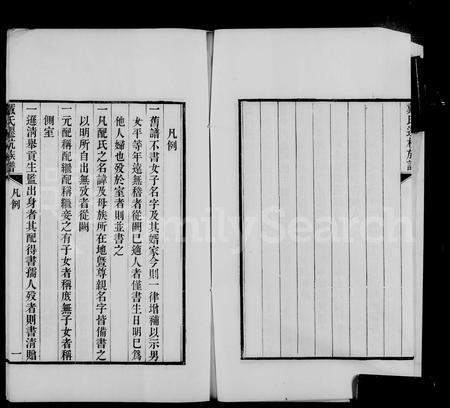 凡例
一舊譜不書女子名字及其婿家今則一律增補以示男
女平等年遠無稽者從闕已適人者僅書生日明已爲
他人婦也歿於室者則並書之
一凡配氏之名諱及母族所在地曁尊親名字皆備書之
以明所自出無攷者從闕
一元配稱配繼配稱繼妾之有子女者稱庶無子女者稱
側室
一遜清舉貢生監出身者其配得書孺人歿者則書清贈
氏遷杭族譜
凡例
一
FamilySearch